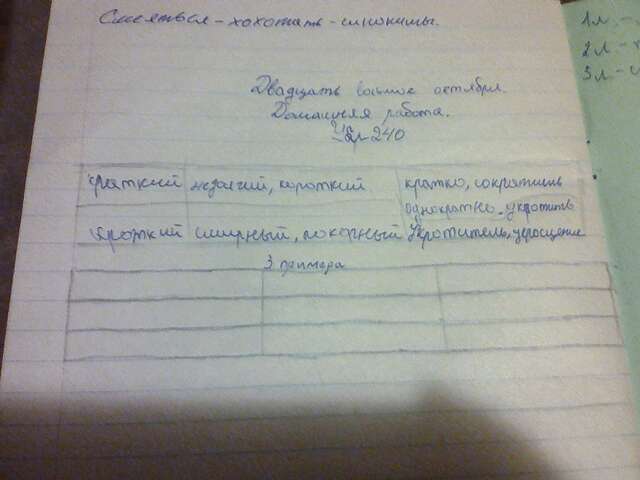 Смеяться - хохотать - синонимы.
Двадцать восьмое октября.
Домашняя работа.
Упр 240
краткий недолгий, короткий кратко, сократить
однократно укротить
Кроткий смирный, покорный Укротитель, укрощение
3 примера
1л. -
2л. -
3л -